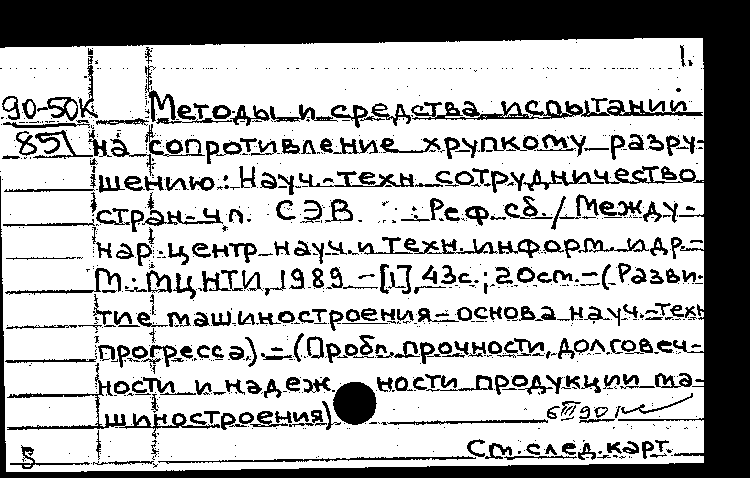 1.
90-50К Методы и средства испытаний
851 на сопротивление хрупкому разру-
шению: Науч.-техн. сотрудничество
стран-чл. СЭВ : Реф. сб. / Между-
нар. центр науч. и техн. информ. и др.-
М.: МЦНТИ, 1989 -[1], 43с.; 20см.-(Разви-
тие машиностроения-основа науч.-техн
прогресса).-(Пробл. прочности, долговеч-
ности и надеж ности продукции ма-
шиностроения)
См. след. карт.
Б